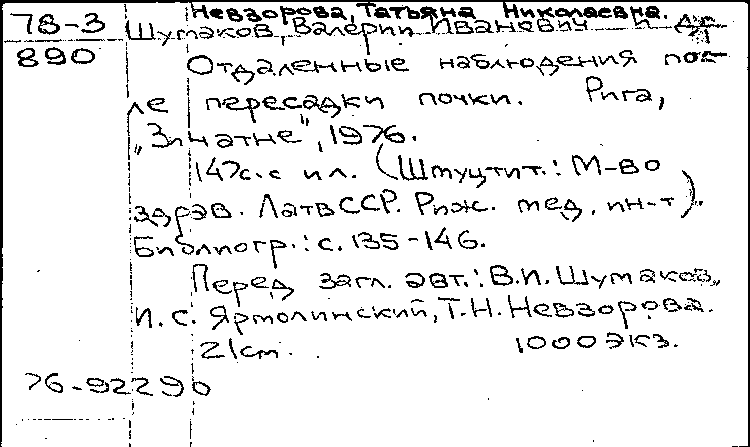 Невзорова, Татьяна Николаевна.
78-3 Шумаков, Валерий Иванович и др
890 Отдаленные наблюдения пос-
ле пересадки почки. Рига,
„Зинатне", 1976.
147с. с ил. (Штуцтит.: М-во
здрав. ЛатвССР. Риж. мед. ин-т).
Библиогр.: с. 135-146.
Перед загл. авт.: В.И. Шумаков,
И. С. Ярмолинский, Т.Н. Невзорова.
21cm. 1000 экз.
76-92290